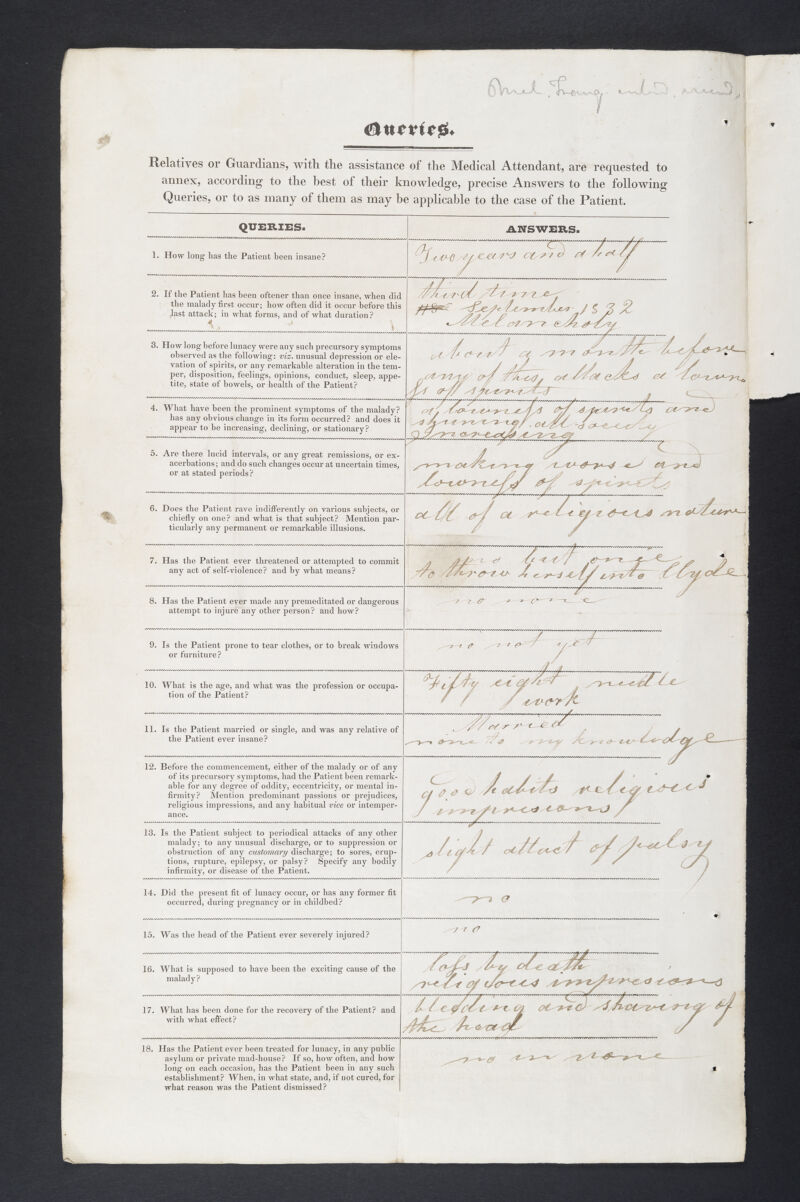 Queries.
Relatives or Guardians, with the assistance of the Medical Attendant, are requested to
annex, according to the best of their knowledge, precise Answers to the following
Queries, or to as many of them as may be applicable to the case of the Patient.
QUERIES.
ANSWERS.
1. How long has the Patient been insane?
Two years and a half
2. If the Patient has been oftener than once insane, when did
the malady first occur; how often did it occur before this
last attack; in what forms, and of what duration?
third time
September 1832
Melancholy
3. How long before lunacy were any such precursory symptoms
observed as the following: viz. unusual depression or ele-
vation of spirits, or any remarkable alteration in the tem-
per, disposition, feelings, opinions, conduct, sleep, appe-
tite, state of bowels, or health of the Patient?
about a month before
any of this attacks a lown
ſs off spirits
4. What have been the prominent symptoms of the malady?
has any obvious change in its form occurred? and does it
appear to be increasing, declining, or stationary?
a lowneſs of spirits and
shuning all Society
Increasing
5. Are there lucid intervals, or any great remissions, or ex-
acerbations; and do such changes occur at uncertain times,
or at stated periods?
making worse and
lowneſs of spirits
6. Does the Patient rave indifferently on various subjects, or
chiefly on one? and what is that subject? Mention par-
ticularly any permanent or remarkable illusions.
all of a religious nature
7. Has the Patient ever threatened or attempted to commit
any act of self-violence? and by what means?
no but once
to throw herself into Clyde
8. Has the Patient ever made any premeditated or dangerous
attempt to injure any other person? and how?
no none
9. Is the Patient prone to tear clothes, or to break windows
or furniture?
no not yet
10. What is the age, and what was the profession or occupa-
tion of the Patient?
Fifty eight needle
work
11. Is the Patient married or single, and was any relative of
the Patient ever insane?
Married
none to my knowledge
12. Before the commencement, either of the malady or of any
of its precursory symptoms, had the Patient been remark-
able for any degree of oddity, eccentricity, or mental in-
firmity? Mention predominant passions or prejudices,
religious impressions, and any habitual vice or intemper-
ance.
good habits religious
impresions
13. Is the Patient subject to periodical attacks of any other
malady; to any unusual discharge, or to suppression or
obstruction of any customary discharge; to sores, erup-
tions, rupture, epilepsy, or palsy? Specify any bodily
infirmity, or disease of the Patient.
slight attact of palsy
14. Did the present fit of lunacy occur, or has any former fit
occurred, during pregnancy or in childbed?
no
15. Was the head of the Patient ever severely injured?
no
16. What is supposed to have been the exciting cause of the
malady?
loſs by death
religious impresions
17. What has been done for the recovery of the Patient? and
with what effect?
bleeding and shaving of
the head
18. Has the Patient ever been treated for lunacy, in any public
asylum or private mad-house? If so, how often, and how
long on each occasion, has the Patient been in any such
establishment? When, in what state, and, if not cured, for
what reason was the Patient dismissed?
no in none